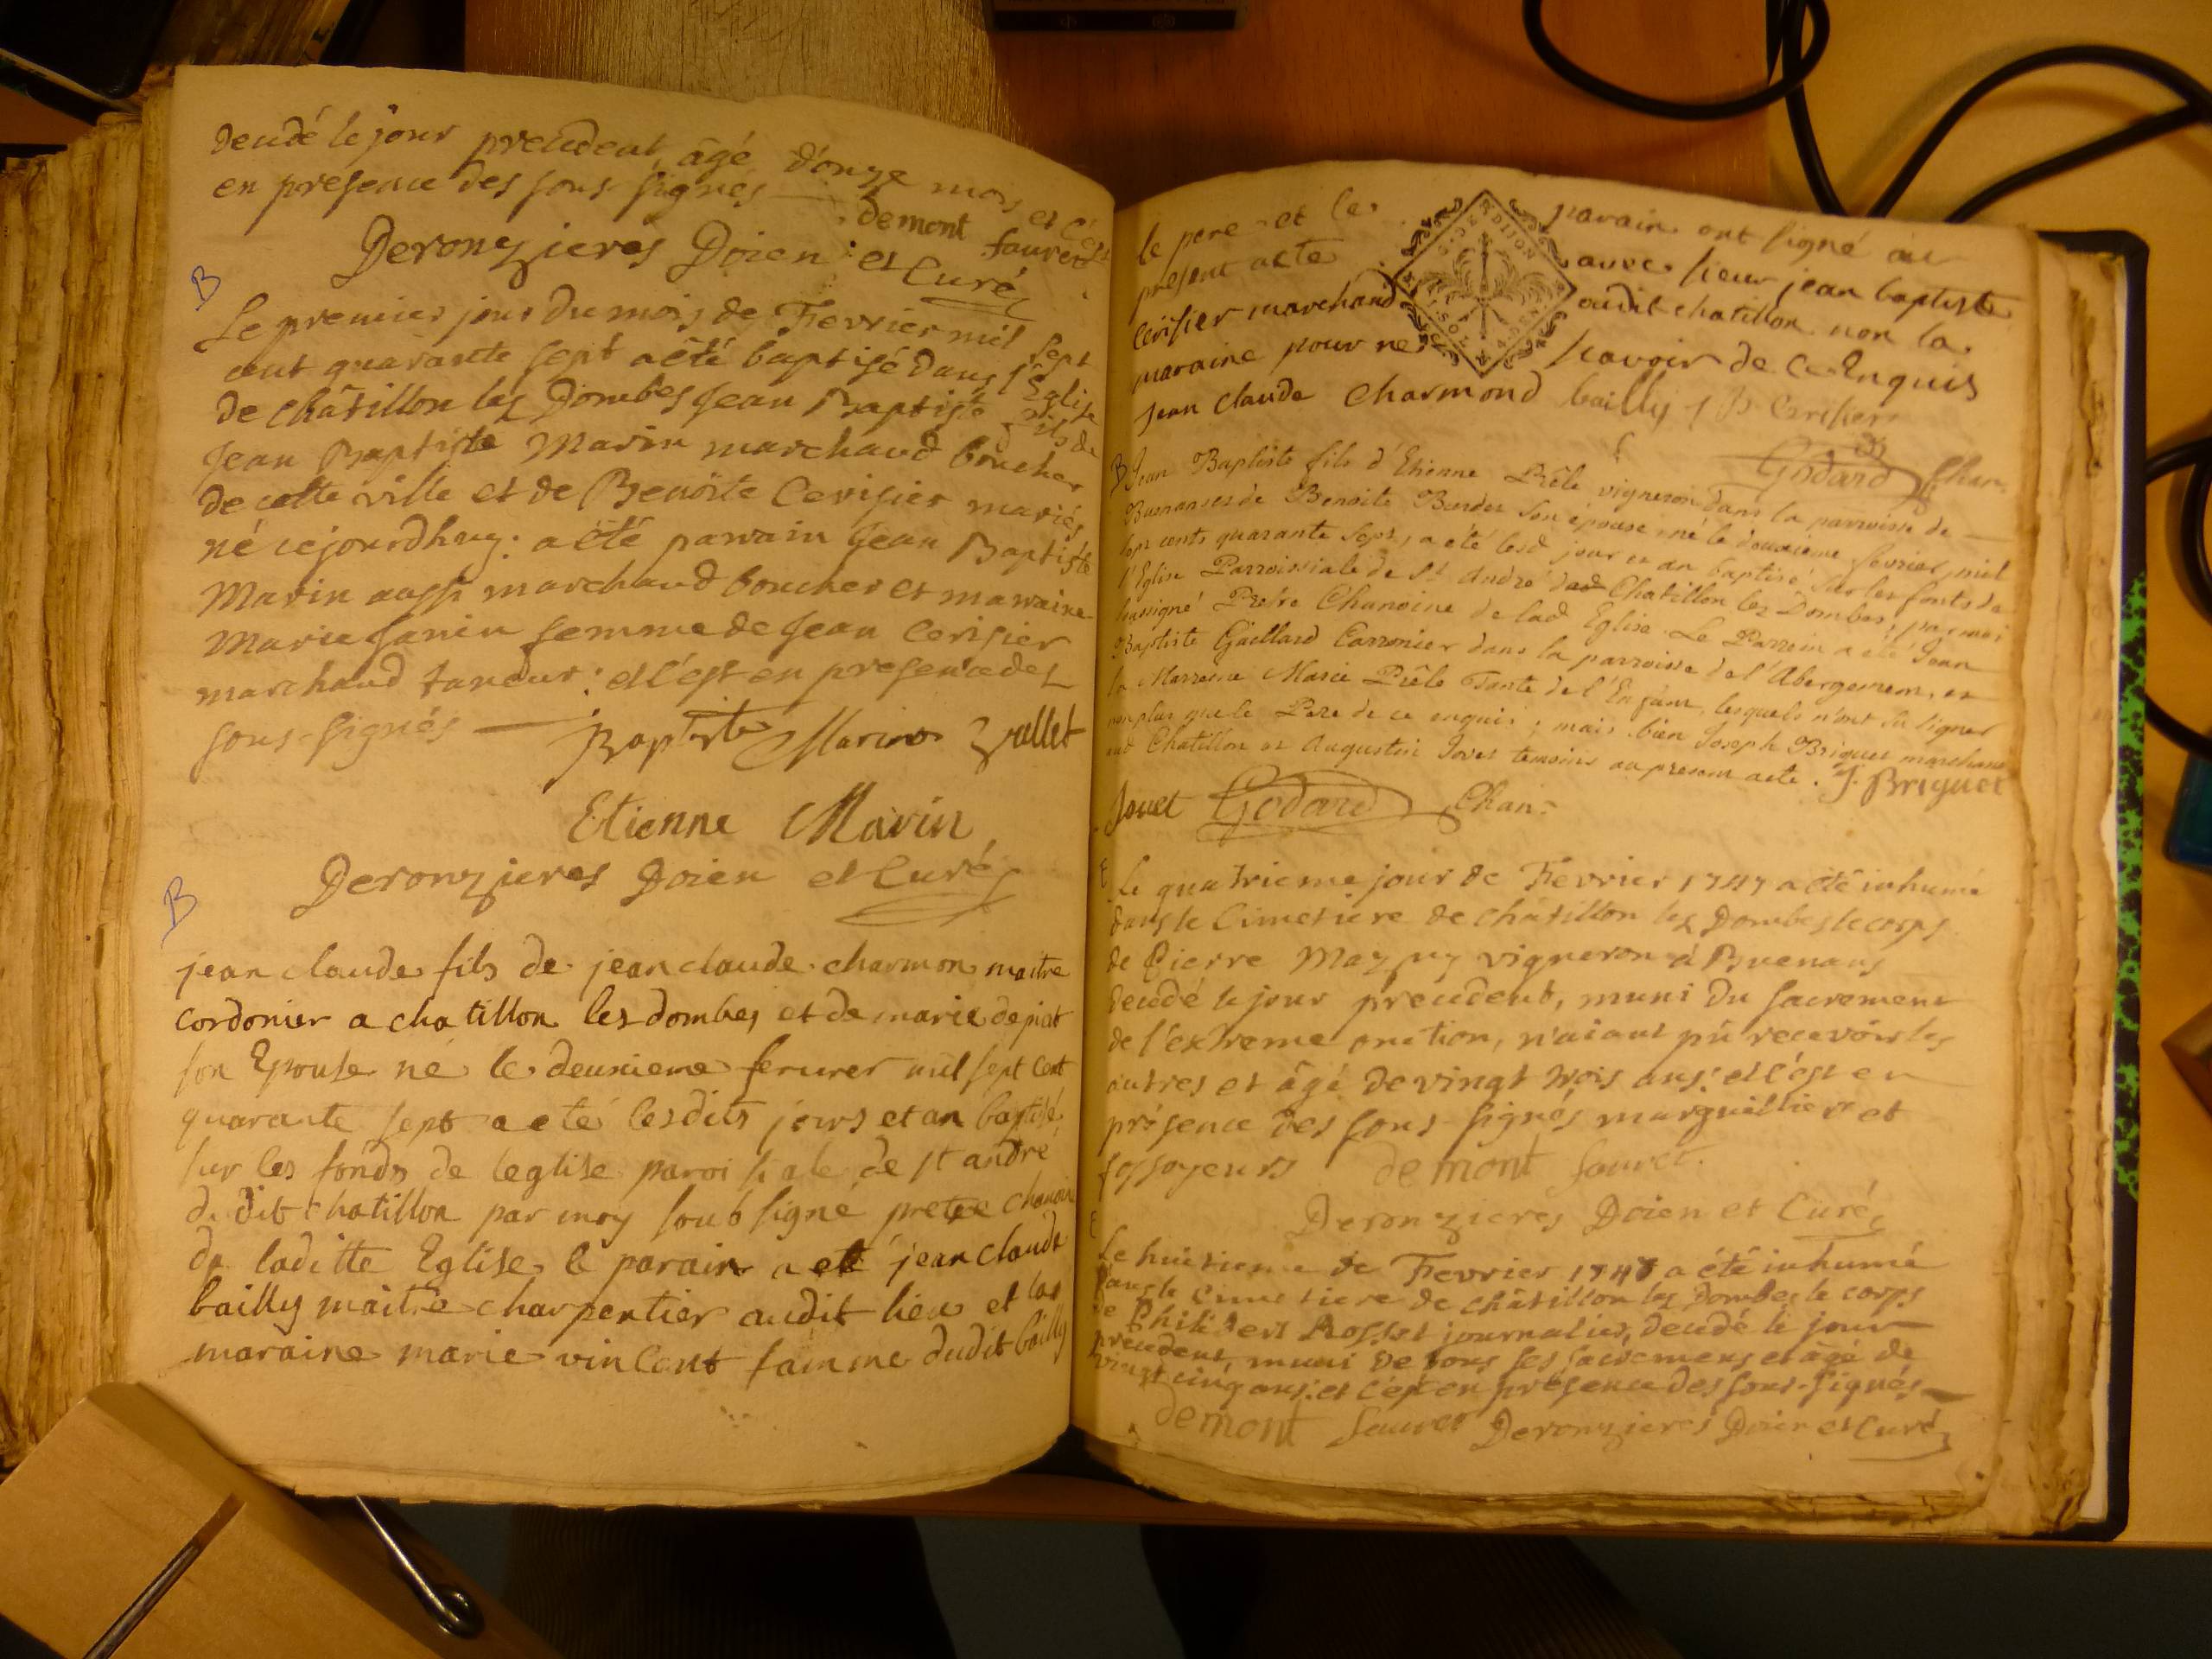 decedé le jour precedent, âgé d'onze mois et c'est
en presence des sous-signés demont sauret
Deronzieres Doien et Curé
B
Le premier jour du mois de Fevrier mil sept
cent quarante sept a êté baptisé dans l'Eglise
de Châtillon les Dombes Jean Baptiste fils de
Jean Baptiste Marin marchand boucher
de cette ville et de Benoîte Cerisier mariés
né cejourdhuy: a êté parrain Jean Baptiste
Marin aussi marchand boucher et marraine
Marie Janin femme de Jean Cerisier
marchand taneur: et c'est en presence des
sous-signés Baptiste Marin Vallet
Etienne Marin
Deronzieres Doien et Curé
B
jean claude fils de jean claude charmon maitre
cordonier a chatillon les dombes et de marie depiat
son Epouse né le deuxieme fevrier mil sept cent
quarante sept a eté lesdits jours et an baptisé
sur les fonds de leglise paroissiale de st andré
dudit chatillon par moy soub signé pretre chanoin
de laditte Eglise le parain a eté jean claude
bailly maitre charpentier audit lieu et la
maraine marie vincent famme dudit bailly
le pere et le parain ont signé au
present acte avec sieur jean baptiste
cerisier marchand audit chatillon non la
maraine pour ne scavoir de ce Enquis
G. DE DIJON
Jean claude charmond bailly J B Cerisier
Godard Chan.
B Jean Baptiste fils d'Etienne Prêle vigneron dans la parroisse de
Buenans et de Benoite Burdet son épouse, né le douxieme fevrier mil
sept cents quarante sept, a été lesd jour et an baptisé sur les fonts de
l'Eglise Parroissiale de St André dud Chatillon les Dombes, par moi
soussigné Pretre Chanoine de lad Eglise. Le Parrein a été Jean
Baptiste Gaillard Carronier dans la parroisse de l'Abergement, et
la Marreine Marie Prêle Tante de l'Enfant, lesquels n'ont su signer
non plus que le Pere de ce enquis; mais bien Joseph Briguet marchand
aud Chatillon et Augustin Jovet temoins au present acte. J. Briguet
Jouet Godard Chan.
Le quatrieme jour de Fevrier 1747 a êté inhumé
dans le Cimetiere de châtillon les Dombes le corps
de Pierre vigneron à Buenans
decedé le jour precedent, muni du sacrement
de l'extreme onction, n'aiant pû recevoir les
autres et âgé de vingt trois ans: et c'est en
présence des sous-signés marguillier et
fossoyeurs demont sauret.
Deronzieres Doien et Curé
Le huitieme de Fevrier 1747 a êté inhumé
dans le Cimetiere de châtillon les Dombes le corps
de Philibert Rosset journalier, decedé le jour
precedent, muni de tous ses sacremens et âgé de
vingt cinq ans: et c'est en presence des sous-signés
demont sauret Deronzieres Doien et Curé